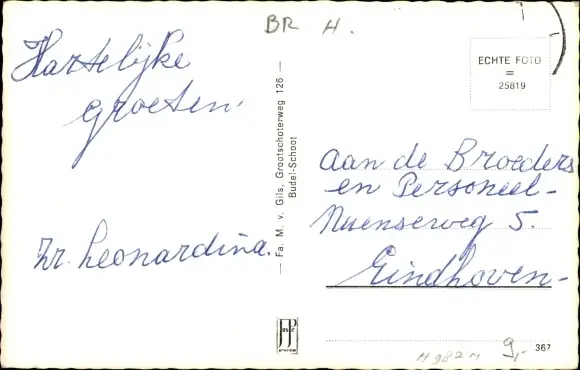 BR H.
Hartelijke
groeten.
Zr. Leonardina.
— Fa. M. v. Gils, Grootschoterweg 126 —
Budel-Schoot
ECHTE FOTO
=
25819
aan de Broeders
en Personeel-
Nuenseweg 5.
Eindhoven-
9,-
367